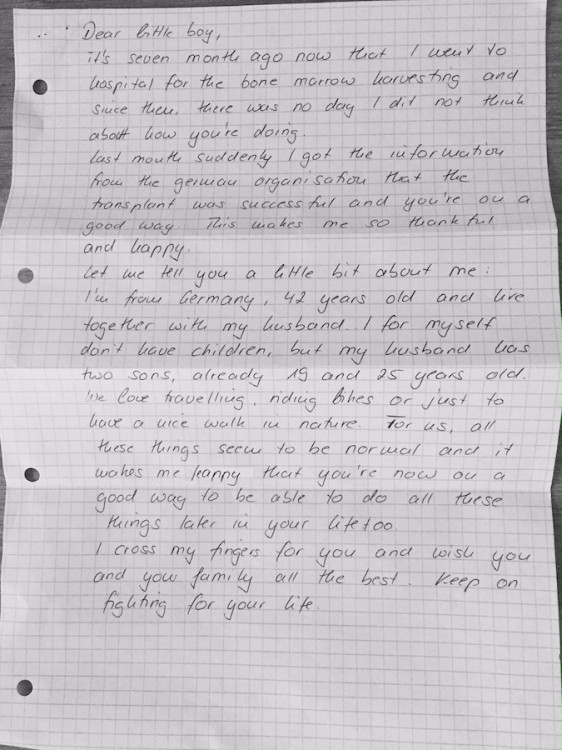 Dear little boy,
it's seven month ago now that I went to
hospital for the bone marrow harvesting and
since then, there was no day I dit not think
about how you're doing.
Last month suddenly I got the information
from the german organisation that the
transplant was successful and you're on a
good way. This makes me so thankful
and happy.
Let me tell you a little bit about me:
I'm from Germany, 42 years old and live
together with my husband. I for myself
don't have children, but my husband has
two sons, already 19 and 25 years old.
We love travelling, riding bikes or just to
have a nice walk in nature. For us, all
these things seem to be normal and it
makes me happy that you're now on a
good way to be able to do all these
things later in your life too.
I cross my fingers for you and wish you
and your family all the best. Keep on
fighting for your life.